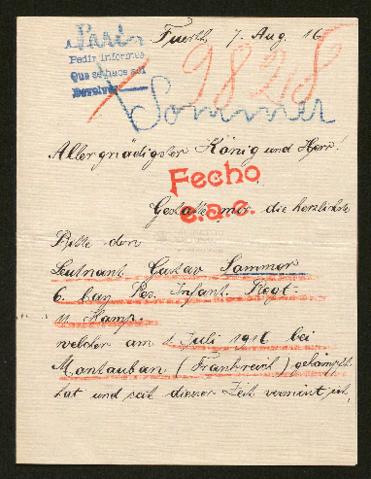 Paris
Fuerth 7. Aug. 16
Pedir informes
Que se hace así
Devolver
9828
Sommer
Allergnädigster König und Herr!
Fecho
e.a.c.
Gestatte mir die herzlichste
Bitte den
Leutnant Gustav Sommer
6. bay Res. Infant. Regt.
11 Komp.
welcher am 1. Juli 1916 bei
Montauban (Frankreich) gekämpft
hat und seit dieser Zeit vermisst ist,